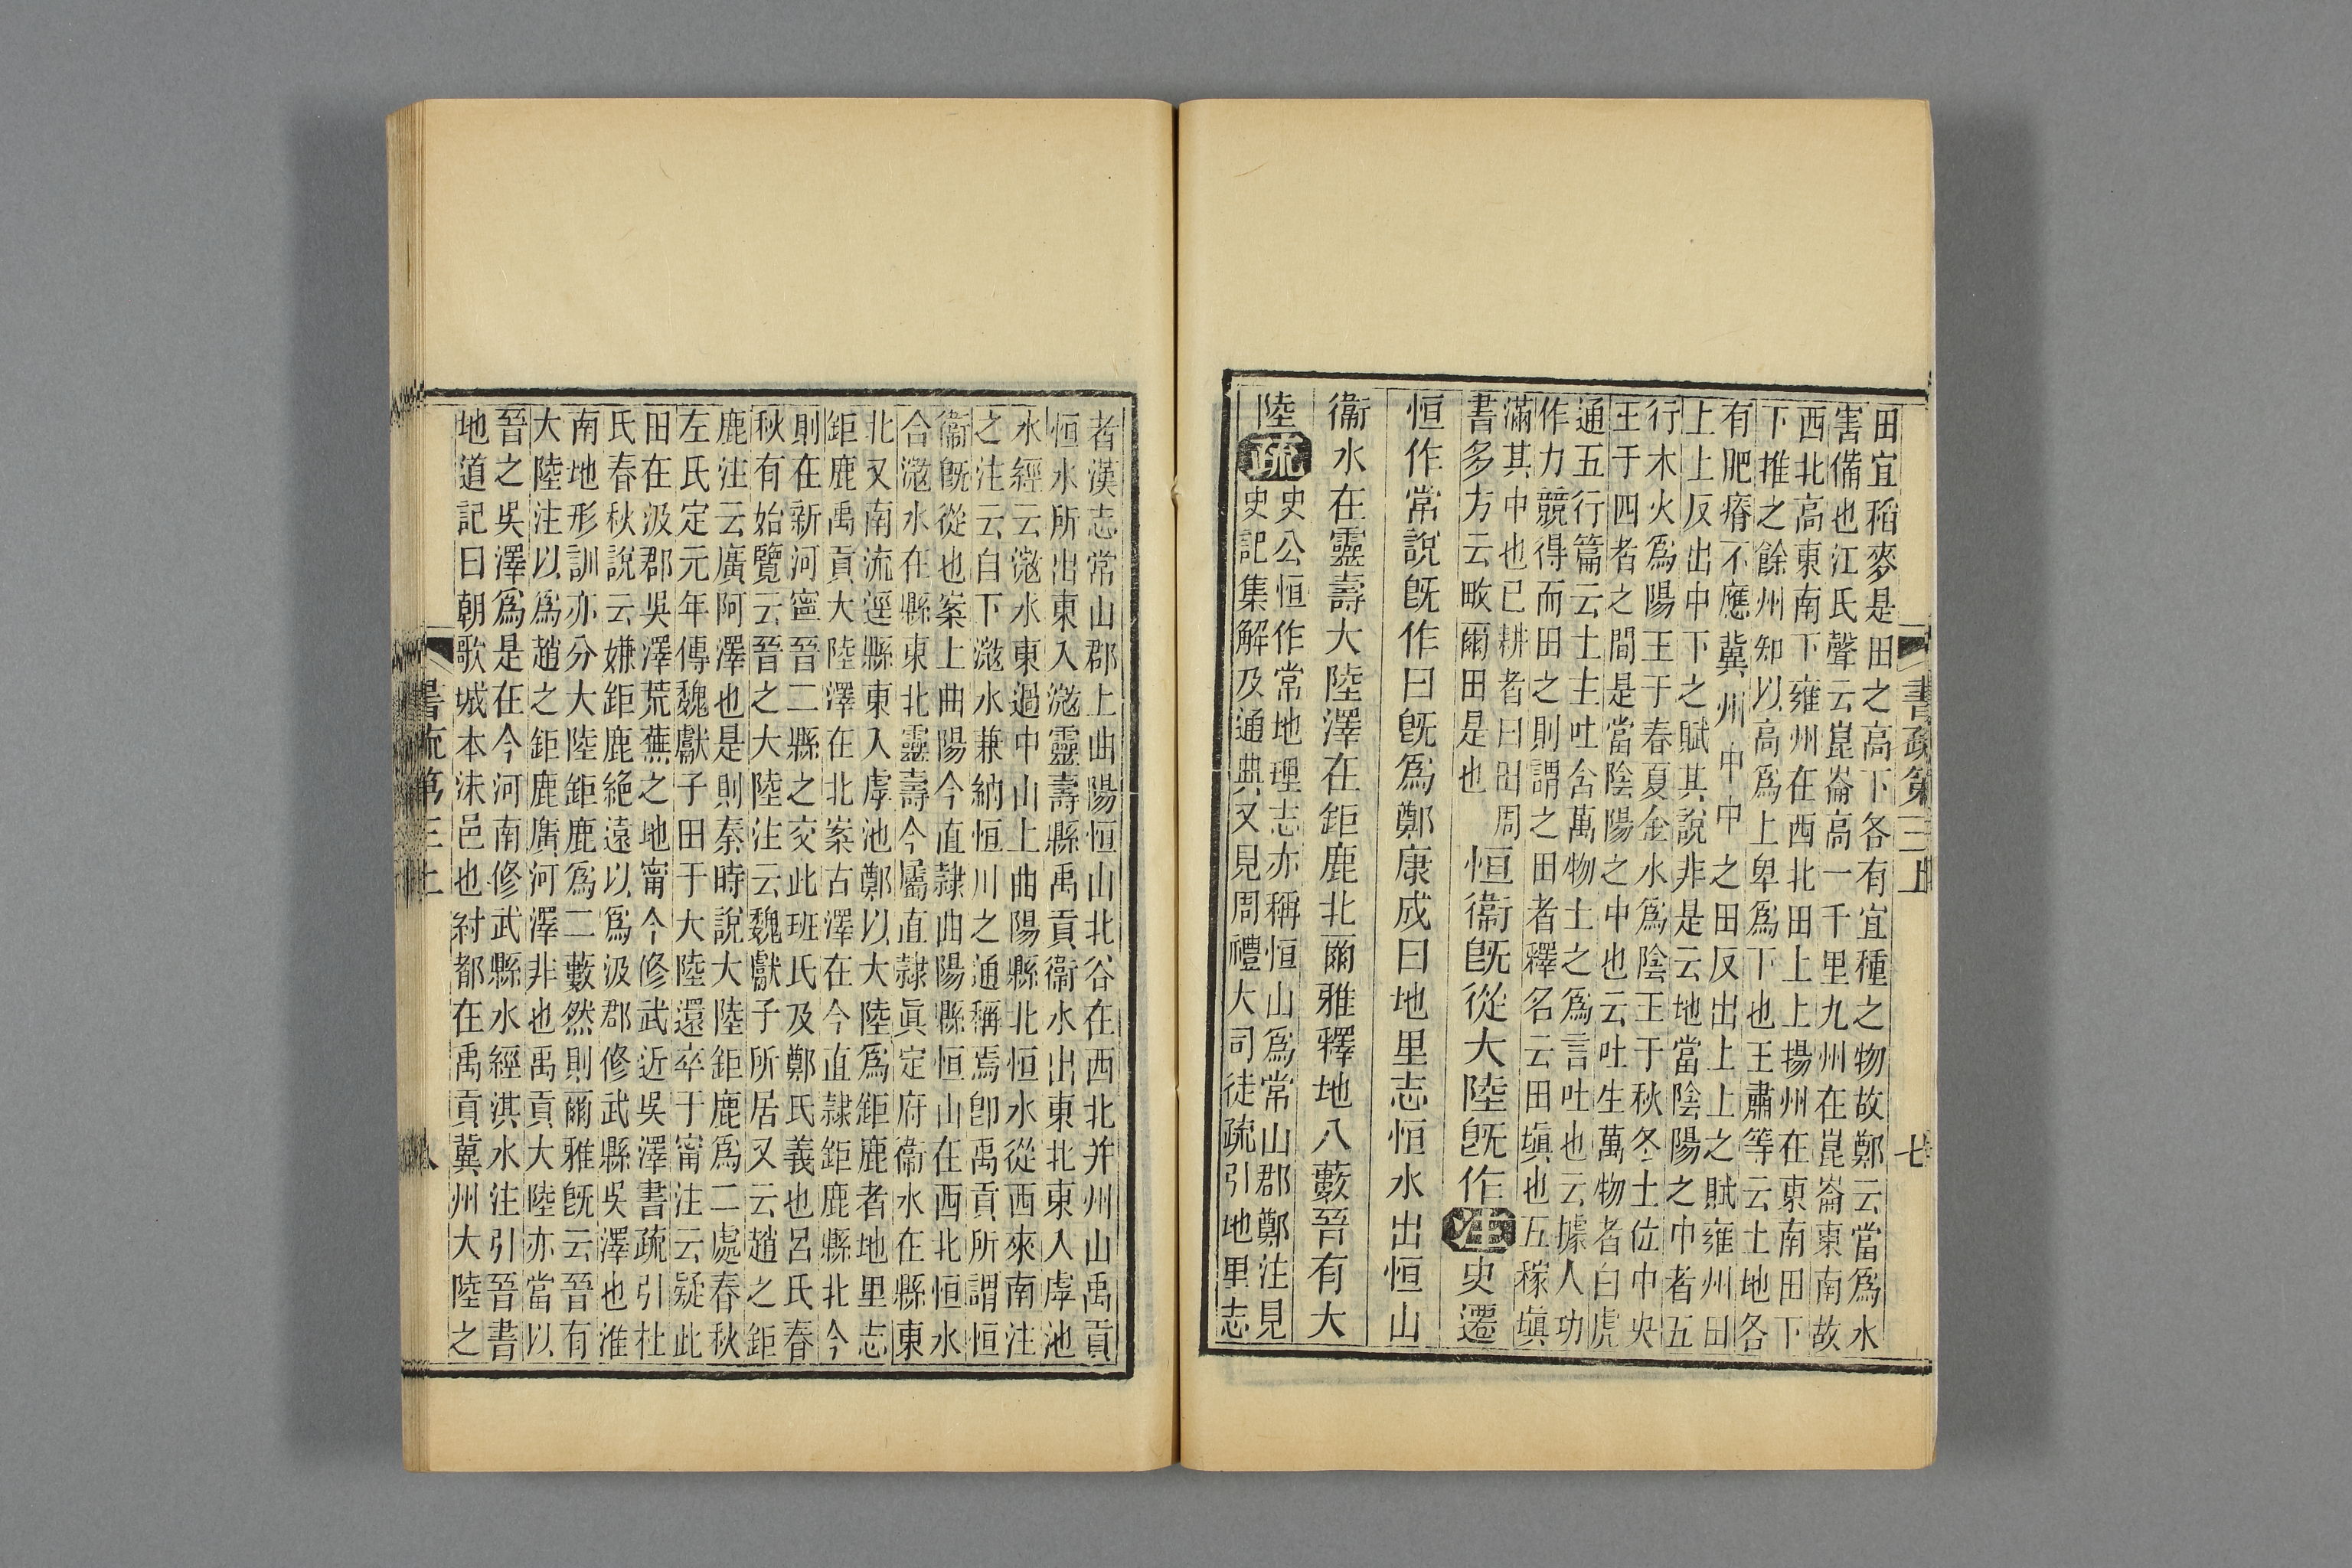 書疏第三上
七
田宜稻麥是田之高下各有宜種之物故鄭云當爲水
害備也江氏聲云崑崙高一千里九州在崑崙東南故
西北高東南下雍州在西北田上上揚州在東南田下
下推之餘州知以高爲上卑爲下也王肅等云土地各
有肥瘠不應冀州中中之田反出上上之賦雍州田
上上反出中下之賦其說非是云地當陰陽之中者五
行木火爲陽王于春夏金水爲陰王于秋冬土位中央
王于四者之間是當陰陽之中也云吐生萬物者白虎
通五行篇云土主吐含萬物土之爲言吐也云據人功
作力競得而田之則謂之田者釋名云田塡也五稼塡
滿其中也已耕者曰田周
書多方云畋爾田是也
恒衞旣從大陸旣作
注
史遷
恒作常說旣作曰旣爲鄭康成曰地里志恒水出恒山
衞水在靈壽大陸澤在鉅鹿北爾雅釋地八藪晉有大
陸
疏
史公恒作常地理志亦稱恒山爲常山郡鄭注見
史記集解及通典又見周禮大司徒疏引地里志
者漢志常山郡上曲陽恒山北谷在西北并州山禹貢
恒水所出東入滱靈壽縣禹貢衞水出東北東入虖池
水經云滱水東過中山上曲陽縣北恒水從西來南注
之注云自下滱水兼納恒川之通稱焉卽禹貢所謂恒
衞旣從也案上曲陽今直隸曲陽縣恒山在西北恒水
合滱水在縣東北靈壽今屬直隸眞定府衞水在縣東
北又南流逕縣東入虖池鄭以大陸爲鉅鹿者地里志
鉅鹿禹貢大陸澤在北案古澤在今直隸鉅鹿縣北今
則在新河寧晉二縣之交此班氏及鄭氏義也呂氏春
秋有始覽云晉之大陸注云魏獻子所居又云趙之鉅
鹿注云廣阿澤也是則秦時說大陸鉅鹿爲二處春秋
左氏定元年傳魏獻子田于大陸還卒于甯注云疑此
田在汲郡吳澤荒蕪之地甯今修武近吳澤書疏引杜
氏春秋說云嫌鉅鹿絶遠以爲汲郡修武縣吳澤也淮
南地形訓亦分大陸鉅鹿爲二藪然則爾雅旣云晉有
大陸注以爲趙之鉅鹿廣河澤非也禹貢大陸亦當以
晉之吳澤爲是在今河南修武縣水經淇水注引晉書
地道記曰朝歌城本沬邑也紂都在禹貢冀州大陸之
書疏第三上
八